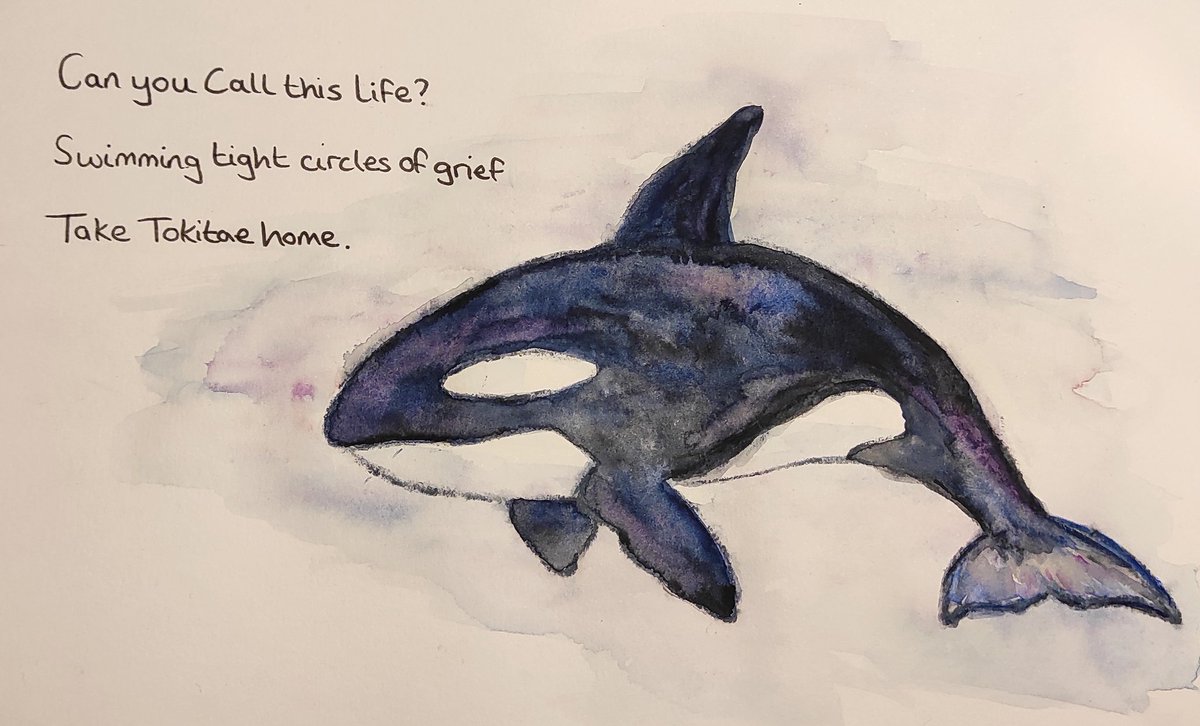 Can you Call this Life?
Swimming tight circles of grief
Take Tokitae home.